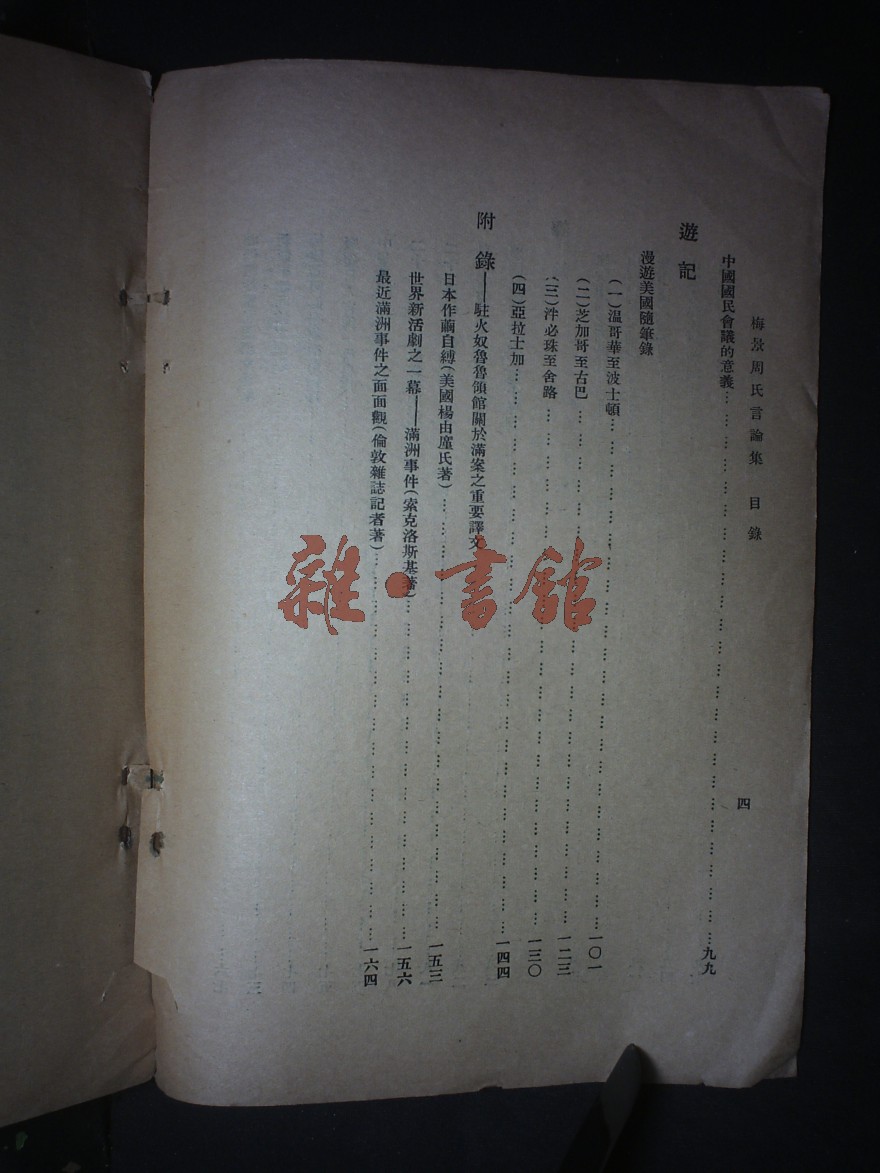 梅景周氏言論集 目錄
四
中國國民會議的意義……九九
遊記
漫遊美國隨筆錄
(一)溫哥華至波士頓……一〇一
(二)芝加哥至古巴……一二三
(三)泮必珠至舍路……一三〇
(四)亞拉士加……一四四
附錄——駐火奴魯魯領館關於滿案之重要譯文
日本作繭自縛(美國楊由廑氏著)……一五三
世界新活劇之一幕——滿洲事件(索克洛斯基著)……一五六
最近滿洲事件之面面觀(倫敦雜誌記者著)……一六四
雜·書館